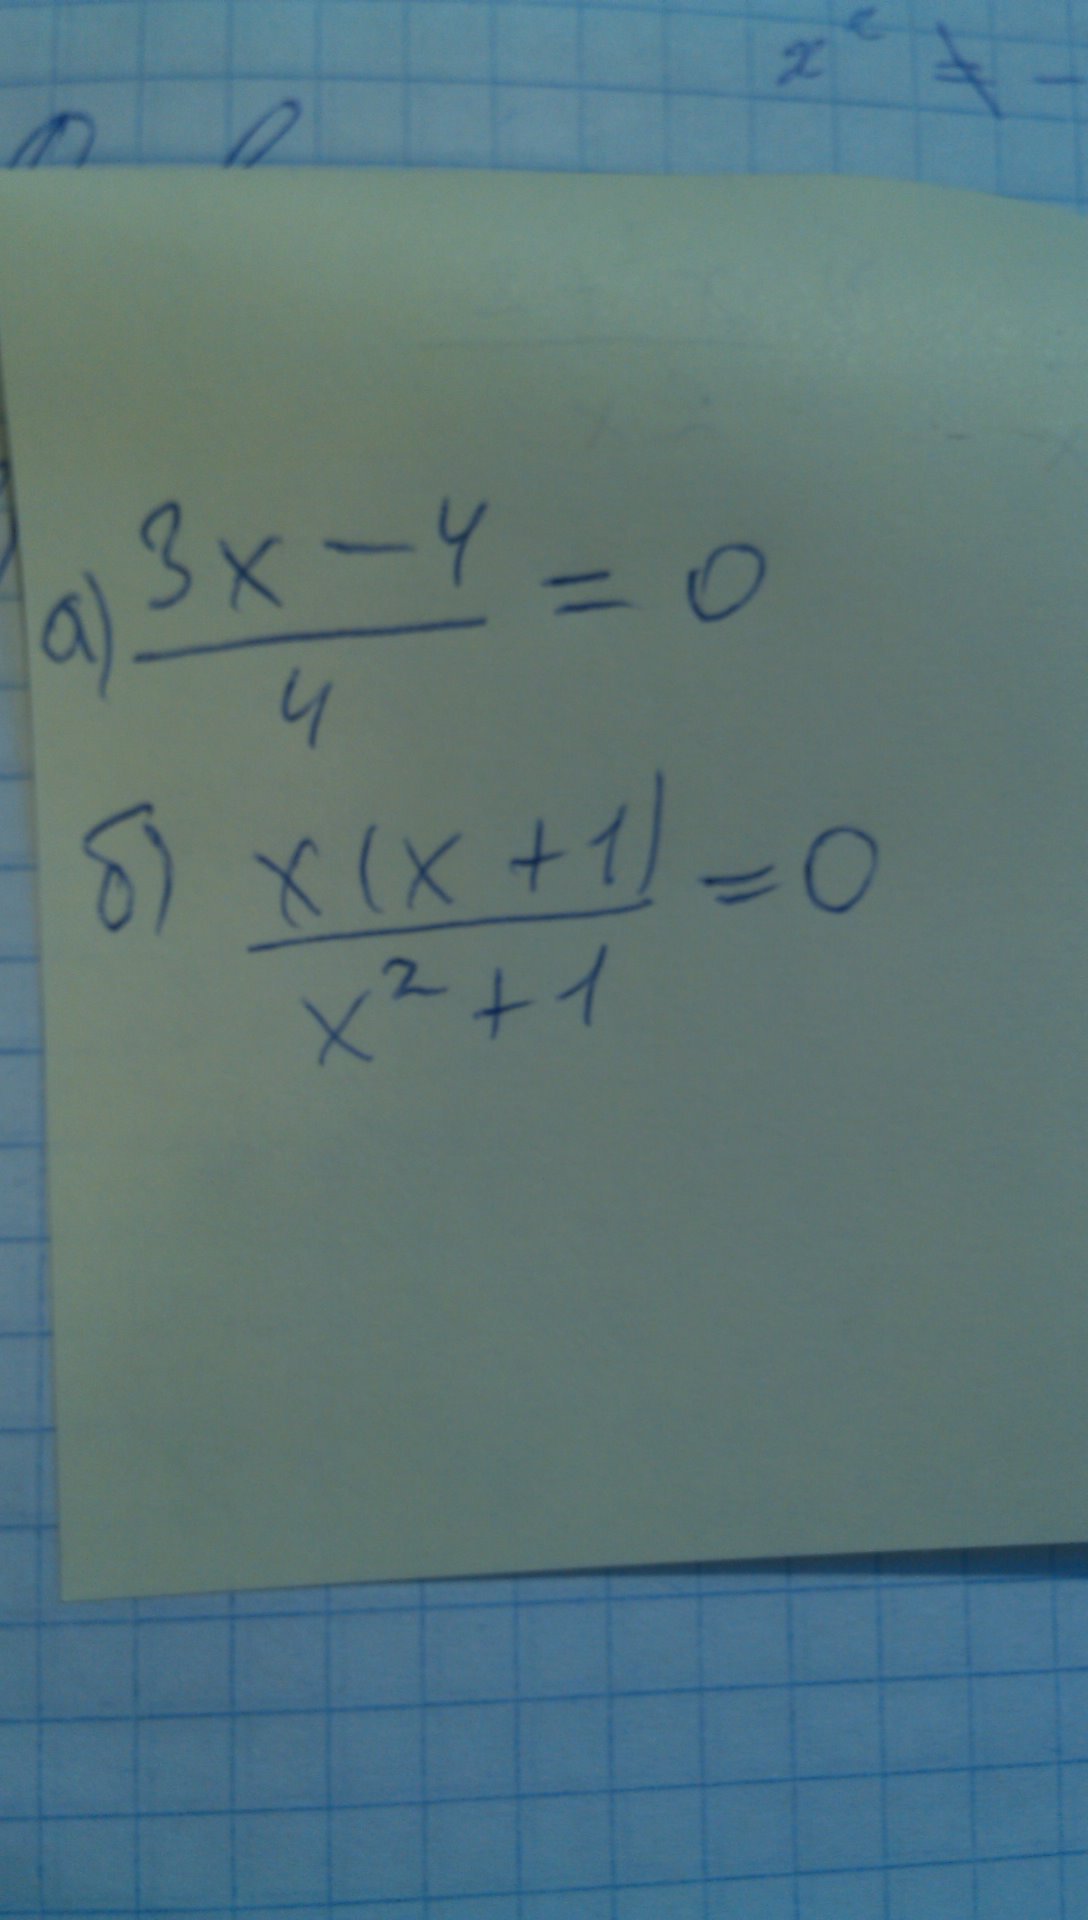 x² ≠ -
а) (3x - 4)/4 = 0
б) (x(x + 1))/(x² + 1) = 0